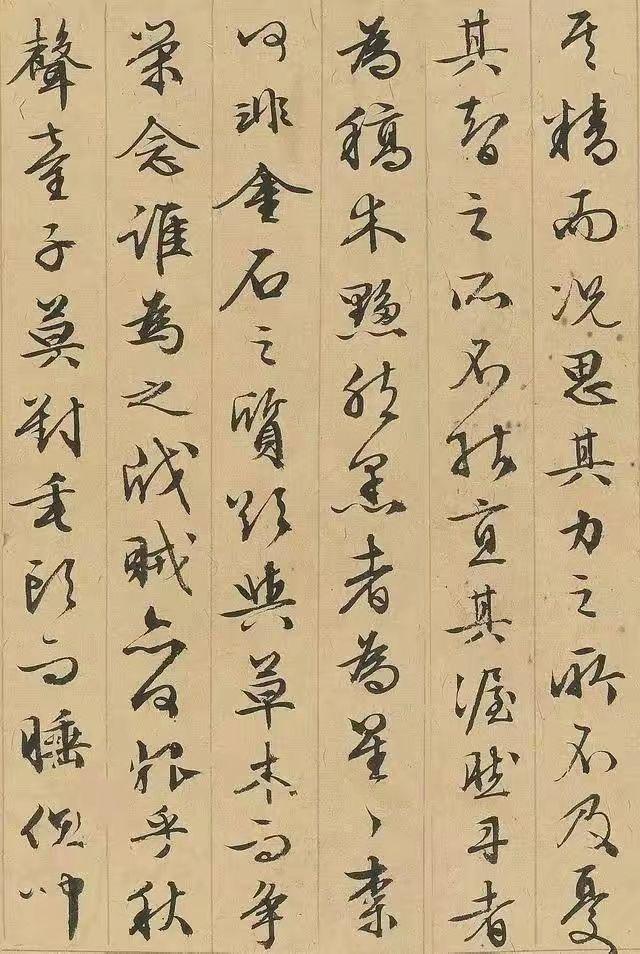 其精而况思其力之所不及憂
其智之所不能宜其渥然丹者
為稿木黟然黑者為星〻柰
何非金石之質欲與草木而争
榮念誰為之戕賊亦何恨乎秋
聲童子莫對垂頭而睡但聞